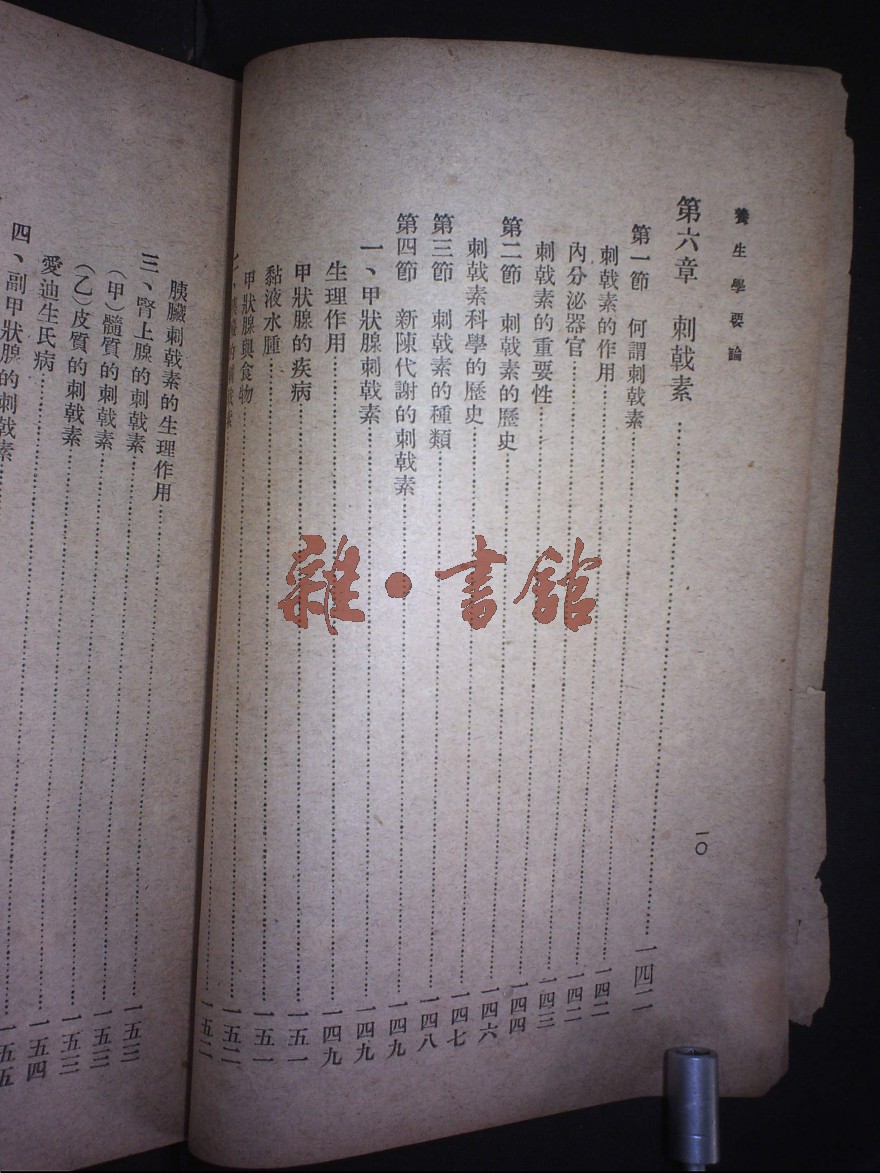 養生學要論
一〇
第六章 刺戟素……一四二
第一節 何謂刺戟素……一四二
刺戟素的作用……一四二
內分泌器官……一四三
刺戟素的重要性……一四四
第二節 刺戟素的歷史……一四六
刺戟素科學的歷史……一四七
第三節 刺戟素的種類……一四八
第四節 新陳代謝的刺戟素……一四九
一、甲狀腺刺戟素……一四九
生理作用……一四九
甲狀腺的疾病……一五一
黏液水腫……一五一
甲狀腺與食物……一五二
二、胰臟的刺戟素……一五二
胰臟刺戟素的生理作用……一五三
三、腎上腺的刺戟素……一五三
（甲）髓質的刺戟素……一五三
（乙）皮質的刺戟素……一五四
愛迪生氏病……一五五
四、副甲狀腺的刺戟素
雜·書館